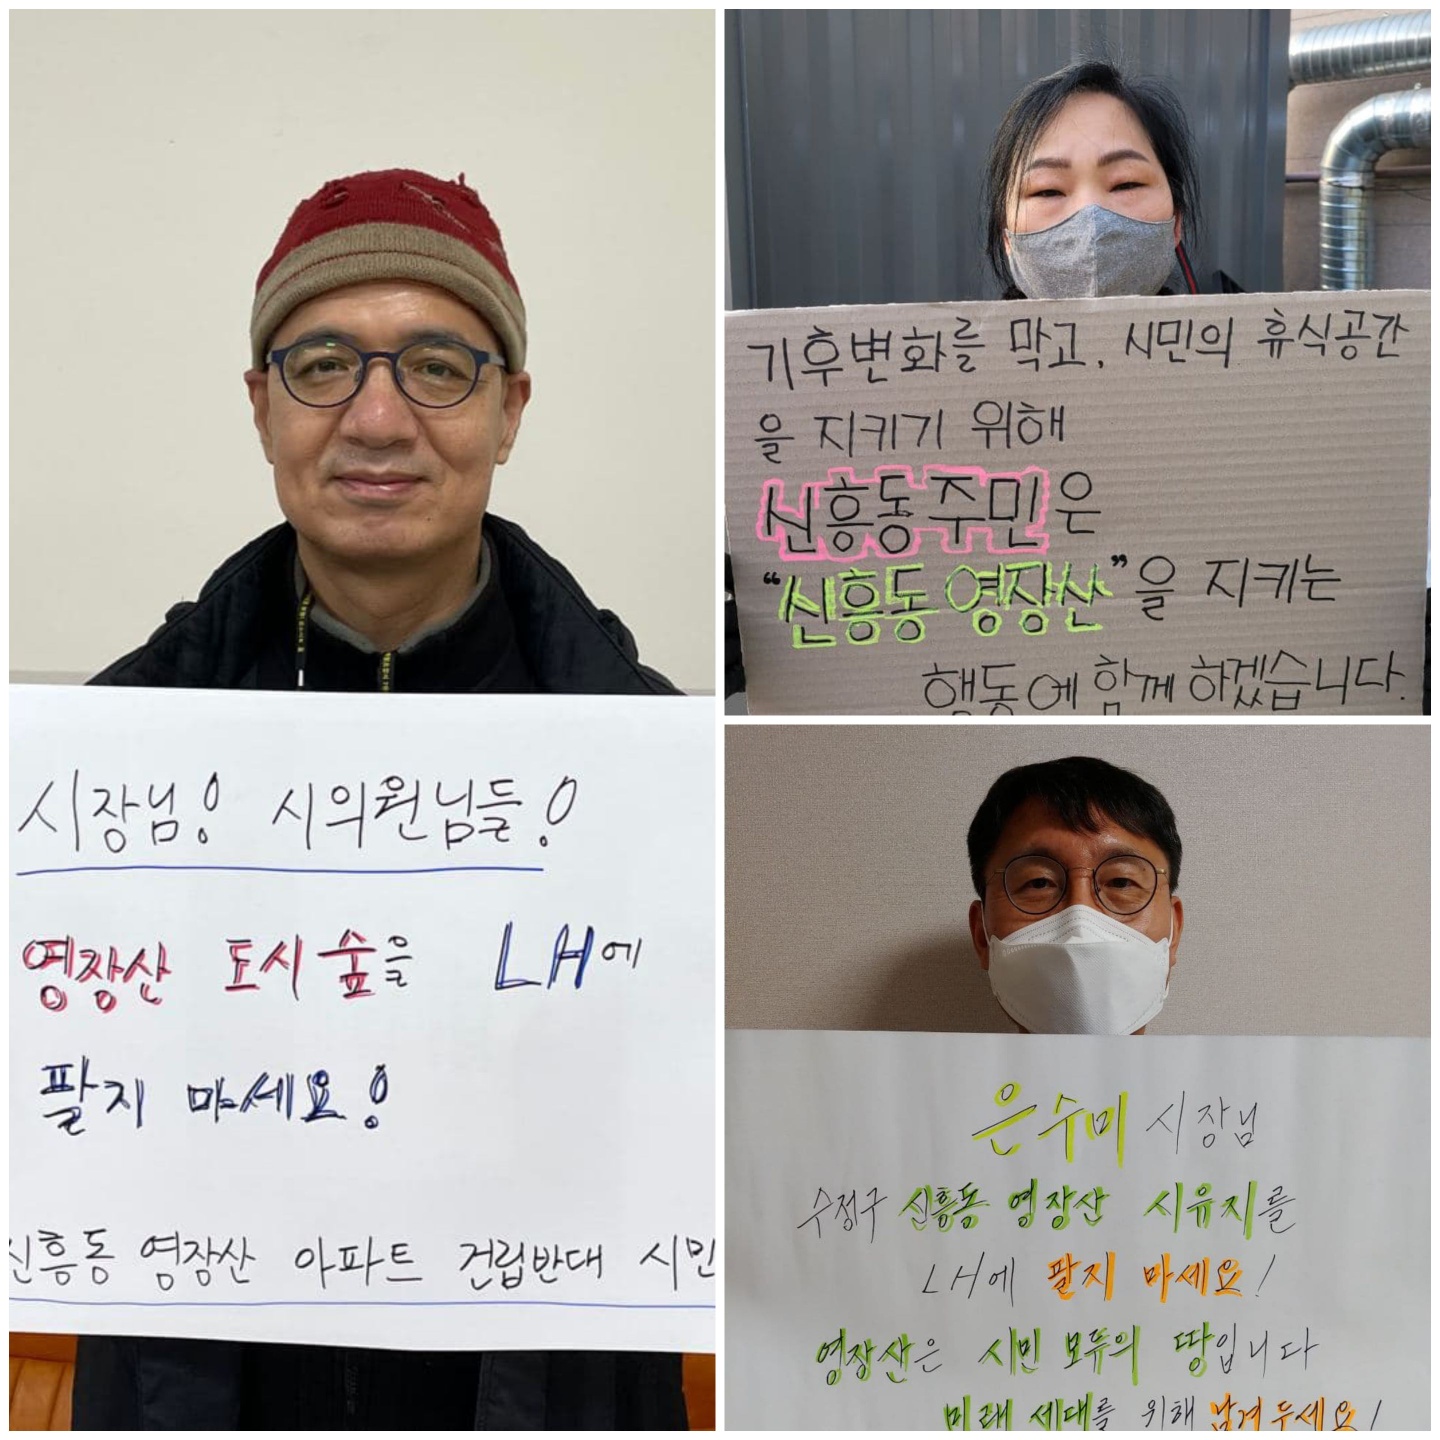 시장님! 시의원님들!
영장산 도시숲을 LH에
팔지 마세요!
신흥동 영장산 아파트 건립반대 시민
기후변화를 막고, 시민의 휴식공간
을 지키기 위해
신흥동 주민은
"신흥동 영장산"을 지키는
행동에 함께 하겠습니다.
은수미 시장님
수정구 신흥동 영장산 시유지를
LH에 팔지 마세요!
영장산은 시민 모두의 땅입니다
미래 세대를 위해 남겨두세요!